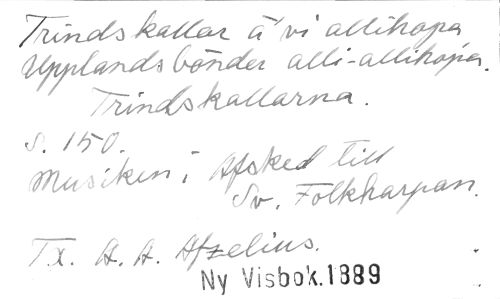 Trindskallar ä' vi allihopa
Upplandsbönder alli-allihopa.
Trindskallarna.
S. 150.
Musiken i Afsked till
Sv. Folkharpan.
Tx. A. A. Afzelius.
Ny Visbok.1889